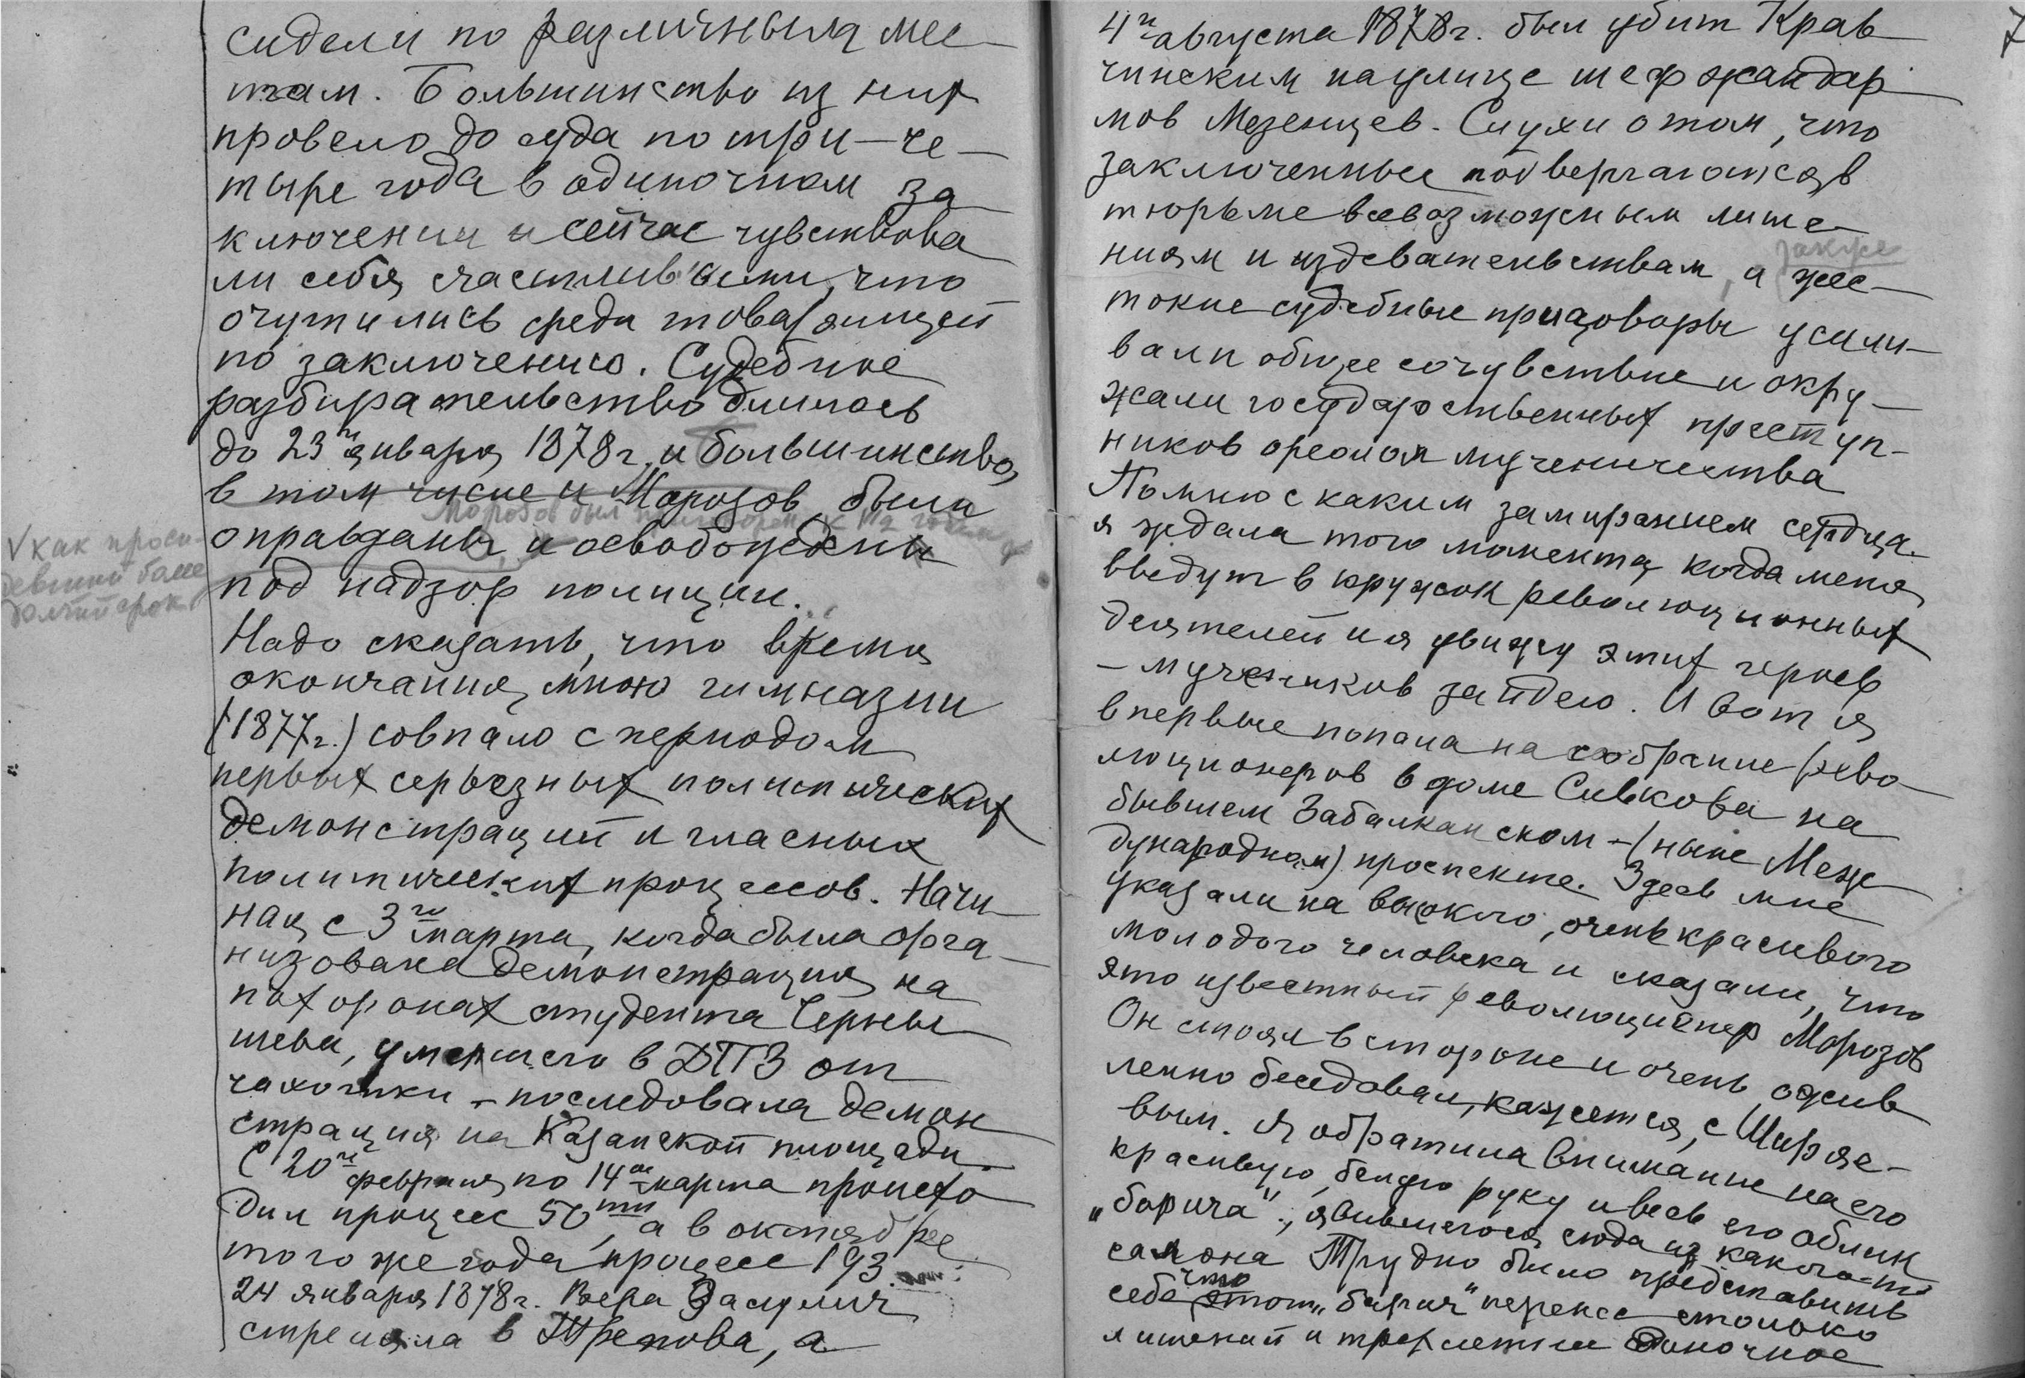 сидели по различным мес-
там. Большинство из них
провело до суда по три-че-
тыре года в одиночном за
ключении и сейчас чувствова
ли себя счастливыми, что
очутились среди товарищей
по заключению. Судебное
разбирательство длилось
до 23го января 1878г. и большинство,
в том числе и Морозов, были
Морозов был приговорен к 1 1/2 годам
оправданы и освобождены
под надзор полиции.
V как проси-
девший более
долгий срок
Надо сказать, что время
окончания мною гимназии
(1877г.) совпало с периодом
первых серьезных политических
демонстраций и гласных
политических процессов. Начи
ная с 3го марта, когда была орга-
низована демонстрация на
похоронах студента Черны
шева, умершего в ДПЗ от
чахотки - последовала демон
страция на Казанской площади.
С 20го февраля по 14ое марта происхо
дил процесс 50ти, а в октябре
того же года процесс 193
24 января 1878г. Вера Засулич
стреляла в Трепова, а
7
4го августа 1878г. был убит Крав
чинским на улице шеф жандар
мов Мезенцев. Слухи о том, что
заключенные подвергаются в
тюрьме всевозможным лише-
ниям и издевательствам, а также жес-
токие судебные приговоры усили-
вали общее сочувствие и окру-
жали государственных преступ-
ников ореолом мученичества
Помню с каким замиранием сердца
я ждала того момента, когда меня
введут в кружок революционных
деятелей и я увижу этих героев
- мучеников за идею. И вот я
впервые попала на собрание рево-
люционеров в доме Сивкова на
бывшем Забалканском - (ныне Меж
дународном) проспекте. Здесь мне
указали на высокого, очень красивого
молодого человека и сказали, что
это известный революционер Морозов
Он стоял в стороне и очень ожив
ленно беседовал, кажется, с Ширяе-
вым. Я обратила внимание на его
красивую, белую руку и весь его облик
„барича“, явившегося сюда из какого-то
салона Трудно было представить
себе что этот „барич“ перенес столько
лишений и трехлетнее одиночное